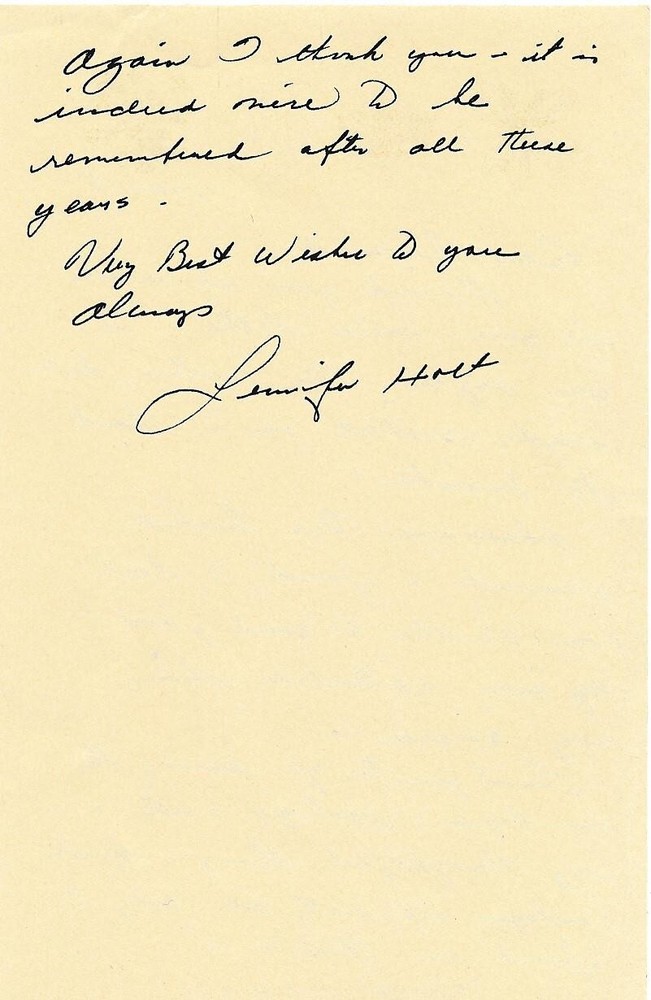 Again I thank you - it is
indeed nice to be
remembered after all these
years -
Very Best Wishes to you
always
Jennifer Holt